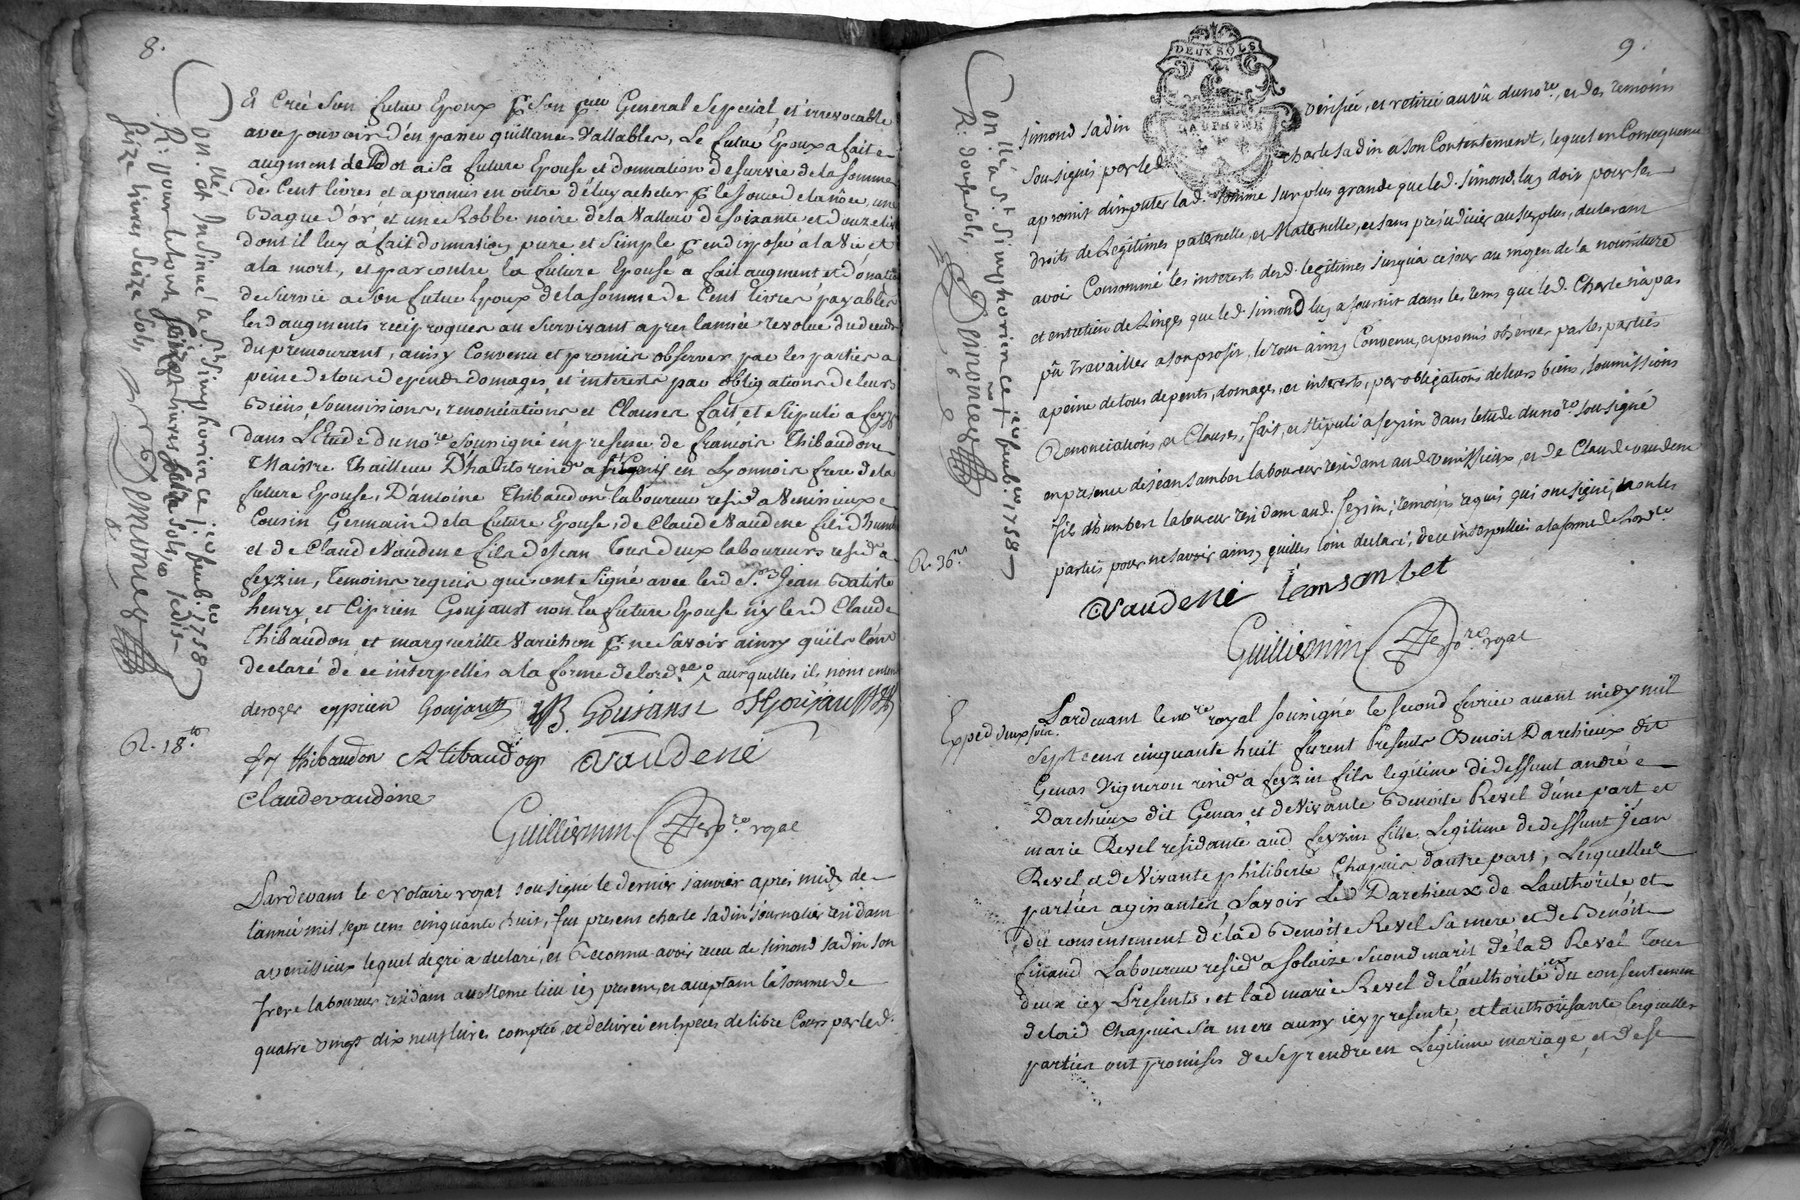 8.
Et Crée Son futur Epoux p. Son pr.eur General Special, et irrevocable
avec pouvoir d'en passer quittances Vallables, Le futur Epoux a fait
augment de Dot a Sa future Epouse et donnation de survie de la somme
de Cent livres et a promis en outre de luy acheter p. le jour de la nôce, une
Bague d'or et une Robbe noire de la Valleur de soixante et douze liv
dont il luy à fait donnation pure et Simple p. en disposer a la Vie et
a la mort, et par contre la future Epouse a fait augment et donâ.
de Survie a Son futur Epoux de la Somme de Cent livres payables
les d augments reciproques au Survivant apres l'année revolue du deceds
du premourant, ainsy Convenu et promis observer par les parties a
peine de tous depends domages, et interests par obligations de leurs
Biens, Soumissions, renonciations et Clauses fait et stipulé a feyzin
dans L'Etude du no.re Soussigné en presence de françois Thibaudon
Maistre Tailleur D'habits resid.t a en Lyonnois frere de la
future Epouse, D'antoine Thibaudon laboureur resid a Venissieux
Cousin Germain de la future Epouse, de Claude Vaudene fils d'humb
et de Claude Vaudene fils de Jean Tous deux laboureurs resid.t a
feyzin, Temoins requis qui ont Signé avec led S.r Jean Batiste
henry et Ciprien Goujaust non la future Epouse ny led Claude
Thibaudon et margueritte Varichon p. ne Savoir ainsy qu'ils l'ont
declaré de ce interpellés a la forme de l'ord.ce auxquelles ils n'ont entend
deroger cyprien Goujaust JB. Goujaust HGoujaust
fr thibaudon A tibaudon vaudené
Claudevaudéne
Guillermin no.re royal
R. 18.s
Con.llé et Insinué a S.t Simphorien ce 1.r feub.er 1758
R. pour le tout seize livres seize sols, 
seize livres seize sols
Pardevant le Notaire royal sousigné le dernier janvier après midy de
l'année mil sept cens cinquante huit, fut present charle sadin journalier residant
a venissieux lequel de gré a declaré, et Reconnu avoir receu de simond sadin son
frere laboureur residant au meme lieu icy present, et acceptant la somme de
quatre vingt dix neuf livres comptée, et delivrée en Especes de libre Cours par led.
9.
DEUX SOLS
DAUPHINE
simond sadin verifiée, et retirée au vû du no.re, et des temoins
Sousignés par led Charle sadin a son Contentement, lequel en Consequence
a promis d'imputer lad. somme sur plus grande que led. simond, luy doit pour ses
droits de Legitimes paternelle, et Maternelle, et sans prejudicier au surplus, declarant
avoir Consommé les interests desd. legitimes jusqu'a ce jour au moyen de la nourriture
et entretien de Linges que led. simond luy a fournit dans les tems que led. Charle n'a pas
pû travailler a son profit, le tout ainsy Convenu, et promis observer par les parties
a peine de tous depents, domages, et interests, par obligations de leurs biens, soumissions
Renonciations, et Clauses, fait, et stipulé a feyzin dans l'etude du no.re sousigné
en presence de jean sambet laboureur residant aud. venissieux, et de Claude vaudene
fils d'humbert laboureur residant aud. feyzin, temoins requis qui ont signé, non les
parties pour ne savoir ainsy qu'elles l'ont declaré, de ce interpellées a la forme de l'ord.ce
vaudené Jean sanbet
Guillermin no.re royal
R. 36.s
Con.llé a S.t Simphorien ce 1.er feub.er 1758
R. douse sols,
Exped deux fois
Pardevant le no.re royal sousigné le second fevrier avant midy mil
Sept cens cinquante huit furent Presents Benoit Darchieux dit
Genas Vigneron resid.t a feyzin fils legitime de deffunt andré
Darchieux dit Genas et de Vivante Benoite Revel d'une part et
marie Revel residante aud. feyzin fille Legitime de deffunt Jean
Revel et de Vivante philiberte Chapuis d'autre part, Lesquelles
parties agissantes savoir Led Darchieux de L'authorité et
du consentement de lad Benoite Revel sa mere et de Benoit
finand Laboureur resid.t a Solaize second marit de lad Revel tous
deux icy Presents, et lad marie Revel de l'authorité et du consentement
de lad Chapuis sa mere aussy icy presente, et l'authorisante lesquelles
parties ont promises de se prendre en Legitime mariage et de se